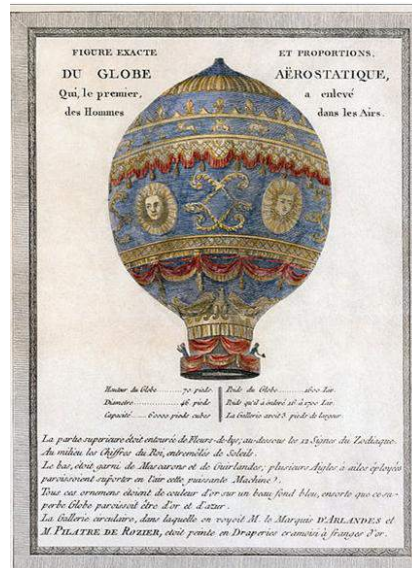 FIGURE EXACTE ET PROPORTIONS,
DU GLOBE AËROSTATIQUE,
Qui, le premier, a enlevé
des Hommes dans les Airs.
Hauteur du Globe 70 pieds. Poids du Globe 1600 Liv.
Diametre 46 pieds Poids qu'il a enlevé 16 à 1700 Liv.
Capacité 60000 pieds cubes La Gallerie avoit 3 pieds de largeur
La partie superieure étoit entourée de Fleurs-de-lys, au-dessous les 12 Signes du Zodiaque.
Au milieu les Chiffres du Roi, entremêlés de Soleils.
Le bas, étoit garni de Mascarons et de Guirlandes; plusieurs Aigles à ailes éployées
paroissoient suporter en l'air cette puissante Machine.
Tous ces ornemens étoient de couleur d'or sur un beau fond bleu, ensorte que ce su-
perbe Globe paroissoit être d'or et d'azur.
La Gallerie circulaire, dans laquelle on voyoit M. le Marquis D'ARLANDES et
M. PILATRE DE ROZIER, étoit peinte en Draperies cramoisi à franges d'or.